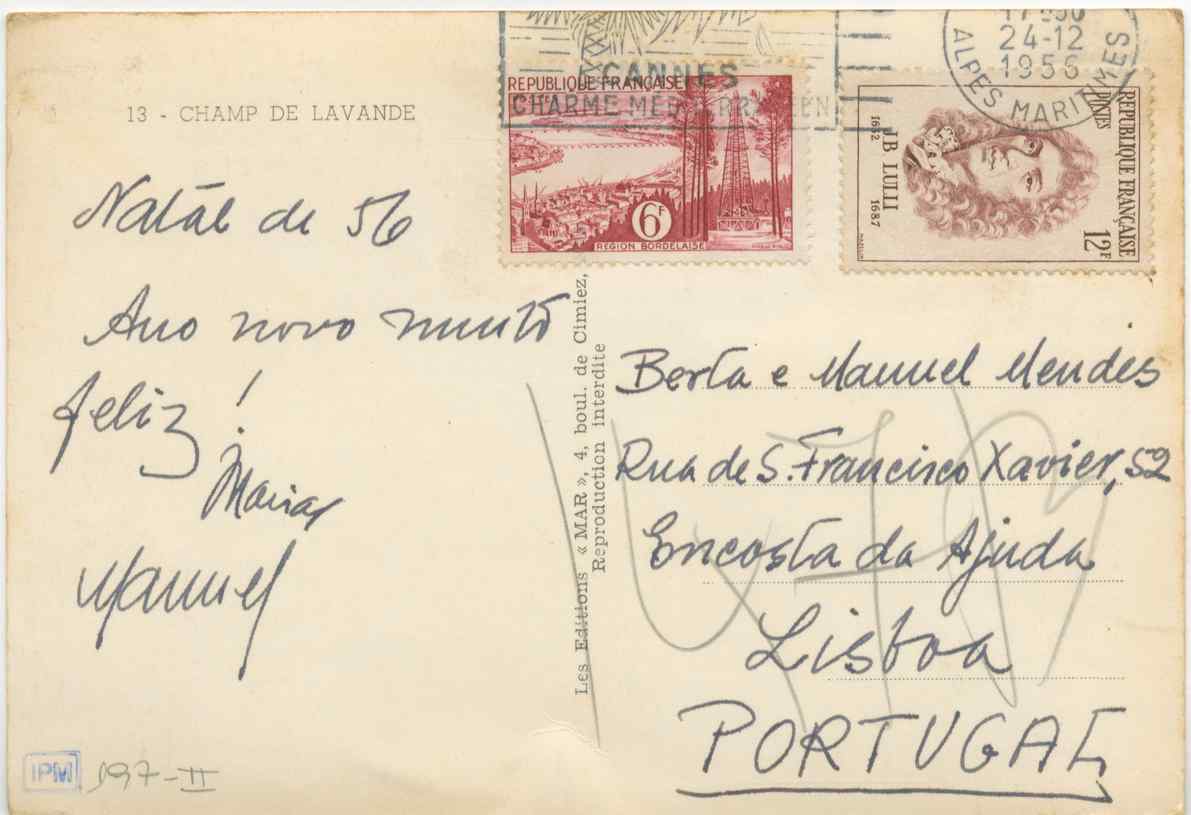 13 - CHAMP DE LAVANDE
Natál de 56
Ano novo muito
feliz!
Maria
Manuel
IPM 197-II
Les Editions « MAR », 4, boul. de Cimiez,
Reproduction interdite
CANNES
CHARME
24-12
1956
ALPES MARITIMES
REPUBLIQUE FRANÇAISE
6F
REGION BORDELAISE
REPUBLIQUE FRANÇAISE
POSTES
12F
J B LULLI
1632 1687
Berta e Manuel Mendes
Rua de S. Francisco Xavier, 52
Encosta da Ajuda
Lisboa
PORTUGAL